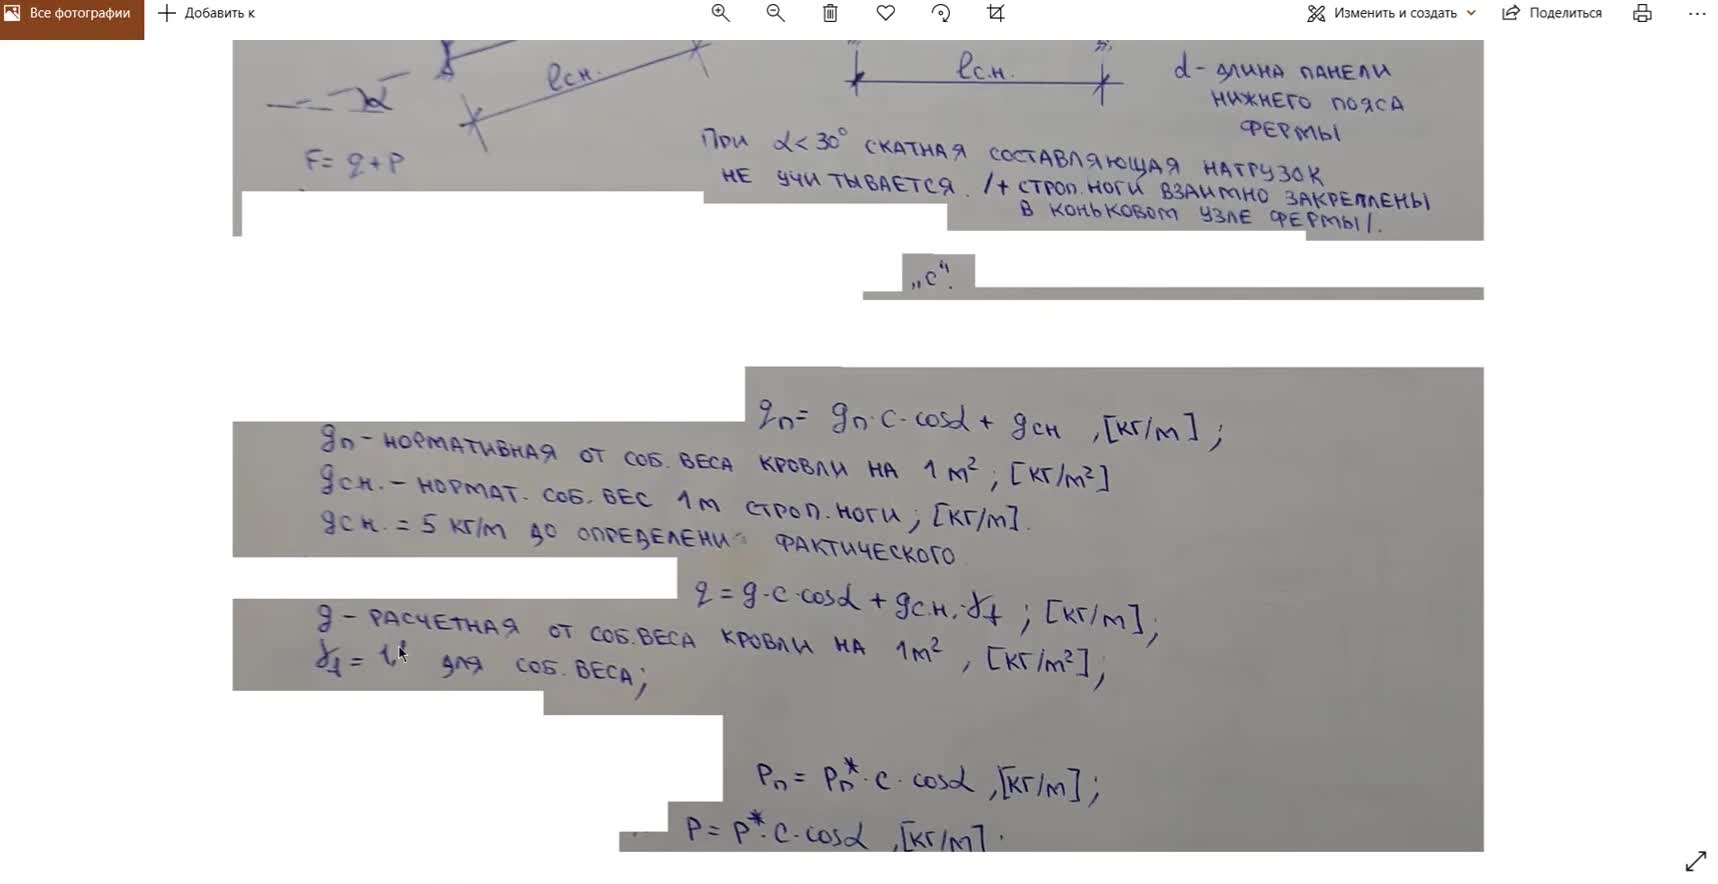 Все фотографии
Добавить к
Изменить и создать
Поделиться
ℓсн.
α
F = q + P
ℓс.н.
d - ДЛИНА ПАНЕЛИ
НИЖНЕГО ПОЯСА
ФЕРМЫ
ПРИ α < 30° СКАТНАЯ СОСТАВЛЯЮЩАЯ НАГРУЗОК
НЕ УЧИТЫВАЕТСЯ. /+ СТРОП. НОГИ ВЗАИМНО ЗАКРЕПЛЕНЫ
В КОНЬКОВОМ УЗЛЕ ФЕРМЫ/.
„с“.
qп = gп · c · cosα + gсн , [кг/м] ;
gп - НОРМАТИВНАЯ ОТ СОБ. ВЕСА КРОВЛИ НА 1 м² ; [кг/м²]
gсн. - НОРМАТ. СОБ. ВЕС 1м СТРОП. НОГИ ; [кг/м].
gсн. = 5 кг/м ДО ОПРЕДЕЛЕНИ ФАКТИЧЕСКОГО
q = g · c · cosα + gс.н. · γf ; [кг/м] ;
g - РАСЧЕТНАЯ ОТ СОБ. ВЕСА КРОВЛИ НА 1м² , [кг/м²] ;
γf = ДЛЯ СОБ. ВЕСА ;
Pп = Pп* · c · cosα , [кг/м] ;
P = P* · c · cosα , [кг/м] .